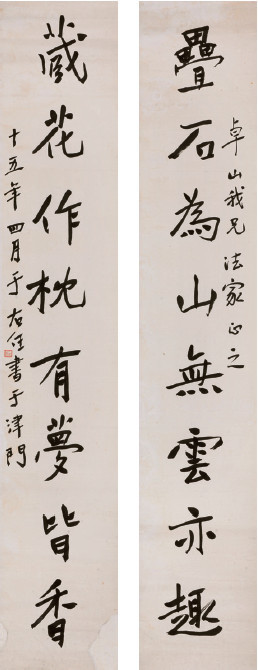 疊石為山無雲亦趣
卓山我兄法家正之
藏花作枕有夢皆香
十五年四月于右任書于津門